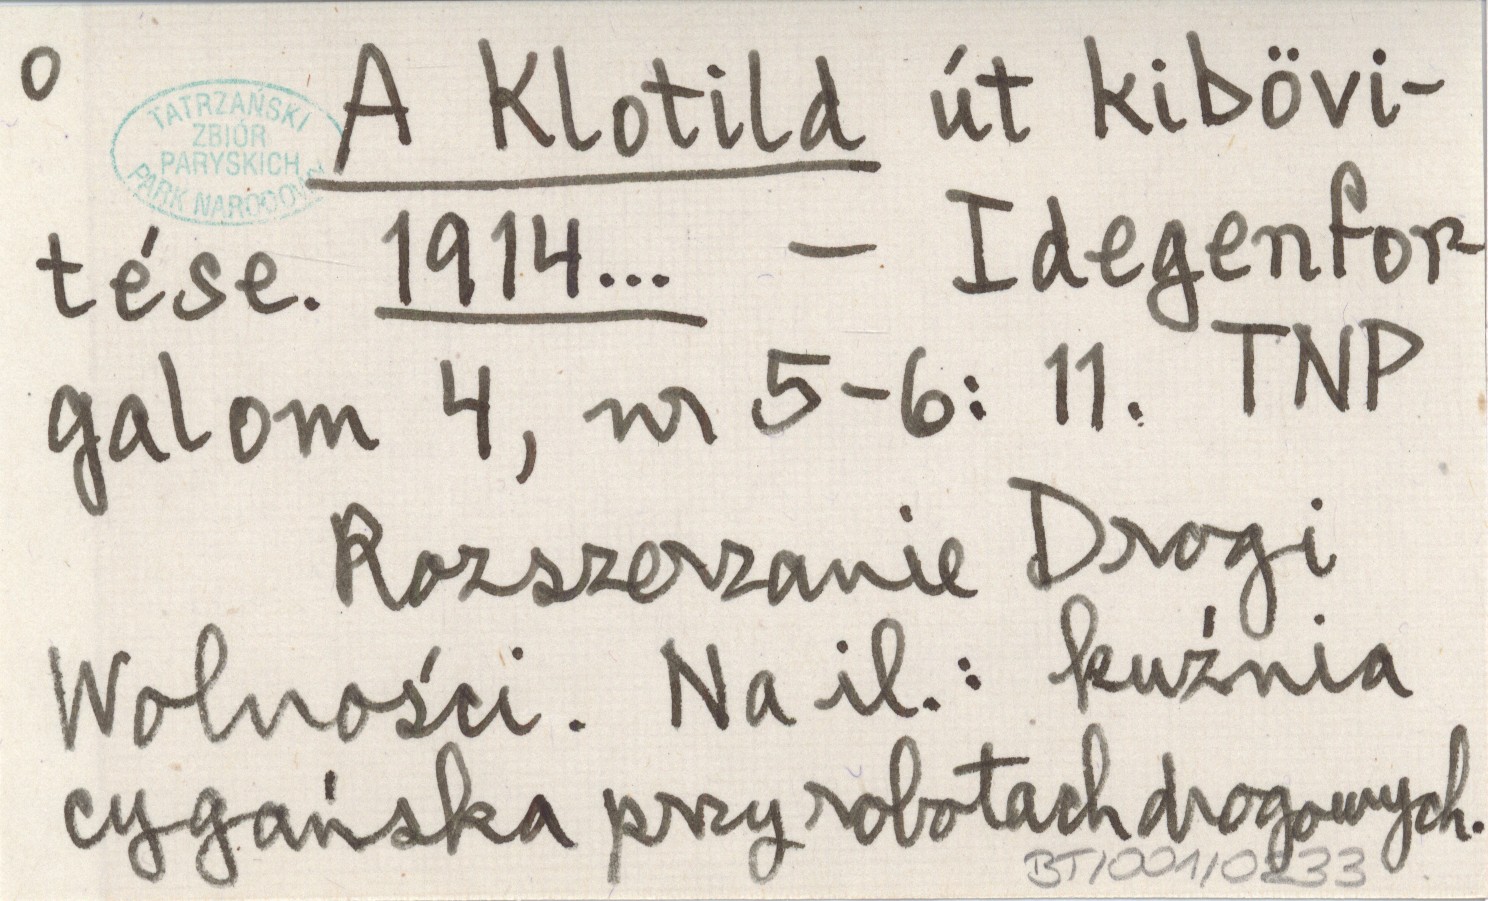 o
TATRZAŃSKI
ZBIÓR
PARYSKICH
PARK NARODOWY
A Klotild út kibövi-
tése. 1914... – Idegenfor-
galom 4, nr 5-6: 11. TNP
Rozszerzanie Drogi
Wolności. Na il.: kuźnia
cygańska przy robotach drogowych.
BT/001/0233